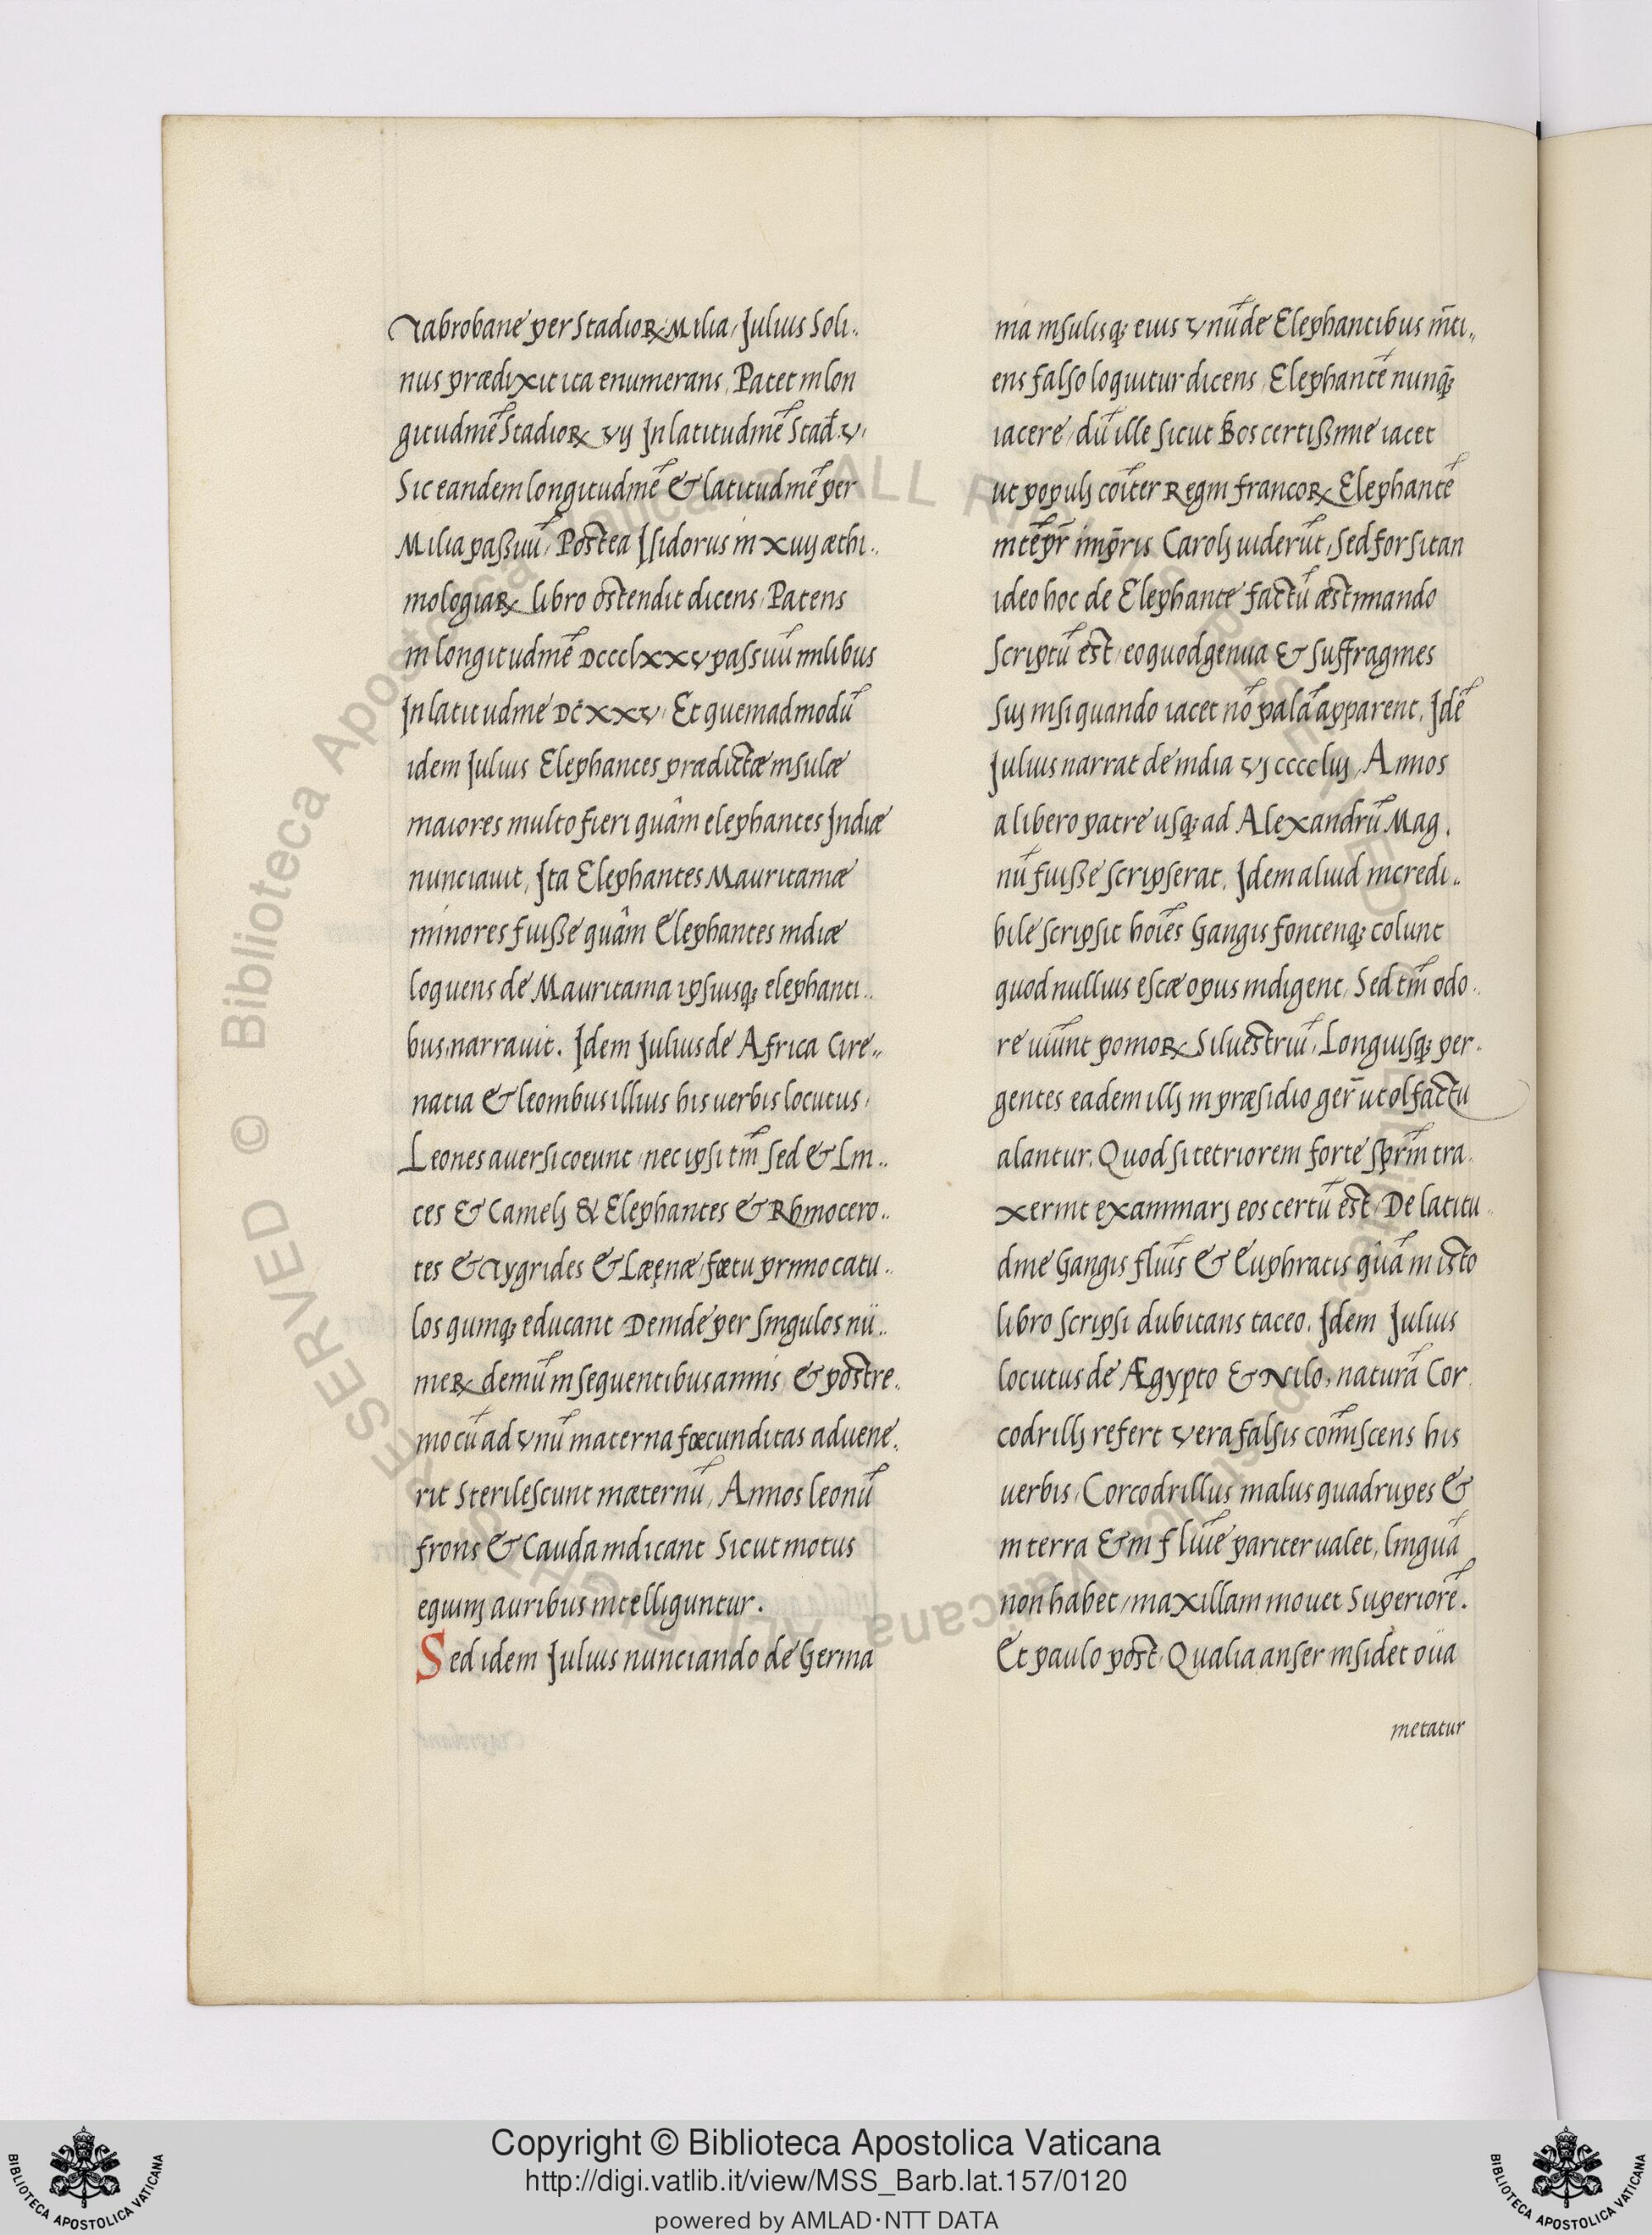 Tabrobane per Stadioꝝ Milia, Julius Soli..
nus prædixit ita enumerans, Patet in lon
gitudinē Stadioꝝ vij In latitudinē Stad̄. v,
Sic eandem longitudinē & latitudinē per
Milia paßuū, Postea Isidorus in xiiij æthi..
mologiaꝝ libro ostendit dicens, Patens
in longitudinē Dccclxxv passuū milibus
In latitudine Dcxxv, Et quemadmodū
idem Julius Elephantes prædictæ insulæ
maiores multo fieri quâm elephantes Indiæ
nunciauit, Ita Elephantes Mauritaniæ
minores fuiße quâm Elephantes indiæ
loquens de Mauritania ipsiusq; elephanti..
bus, narrauit. Idem Julius de Africa Cire..
natia & leonibus illius his uerbis locutus,
Leones auersi coeunt, nec ipsi tm̄ sed & Lin..
ces & Camelj & Elephantes & Rhinocero..
tes & Tygrides & Leęnæ, fœtu primo catu..
los quinq; educant, Deinde per singulos nu..
meꝝ demū in sequentibus annis, & postre..
mo cū ad vnū materna fœcunditas aduene..
rit Sterilescunt mæternū, Annos leonū
frons & Cauda indicant Sicut motus
equinj auribus intelliguntur.
Sed idem Julius nunciando de Germa
nia insulisq; eius vnū de Elephantibus m̄ti..
ens falso loquitur dicens, Elephantē nunq̄;
iacere, dū ille sicut Bos certißime iacet
ut populj coīter Regni francoꝝ Elephantē
in tēpr̄ imp̄ris Carolj uiderūt, Sed forsitan
ideo hoc de Elephante factū æstimando
Scriptū est, eo quod genua & suffragines
suj nisi quando iacet nō palā apparent, Idē
Julius narrat de india vj ccccliij, Annos
a libero patre usq; ad Alexandrū Mag.
nū fuiße scripserat, Idem aliud incredi..
bile scripsit hoīes Gangis fontenq; colunt
quod nullius escæ opus indigent, Sed tm̄ odo..
re uiūnt pomoꝝ Siluestriū, Longiusq; per.
gentes eadem illj in præsidio ger̄ ut olfactu
alantur, Quod si tetriorem forte sp̄rm tra.
xerint exanimarj eos certū est, De latitu..
dine Gangis fluīs & Euphratis quā in isto
libro scripsi dubitans taceo. Idem Julius
locutus de Ægypto & Nilo, naturā Cor
codrillj refert vera falsis com̄iscens his
uerbis, Corcodrillus malus quadrupes &
in terra & in fluīe pariter ualet, linguā
non habet, maxillam mouet Superiorē.
Et paulo post, Qualia anser insidet oua
metatur
Copyright © Biblioteca Apostolica Vaticana
http://digi.vatlib.it/view/MSS_Barb.lat.157/0120
powered by AMLAD·NTT DATA